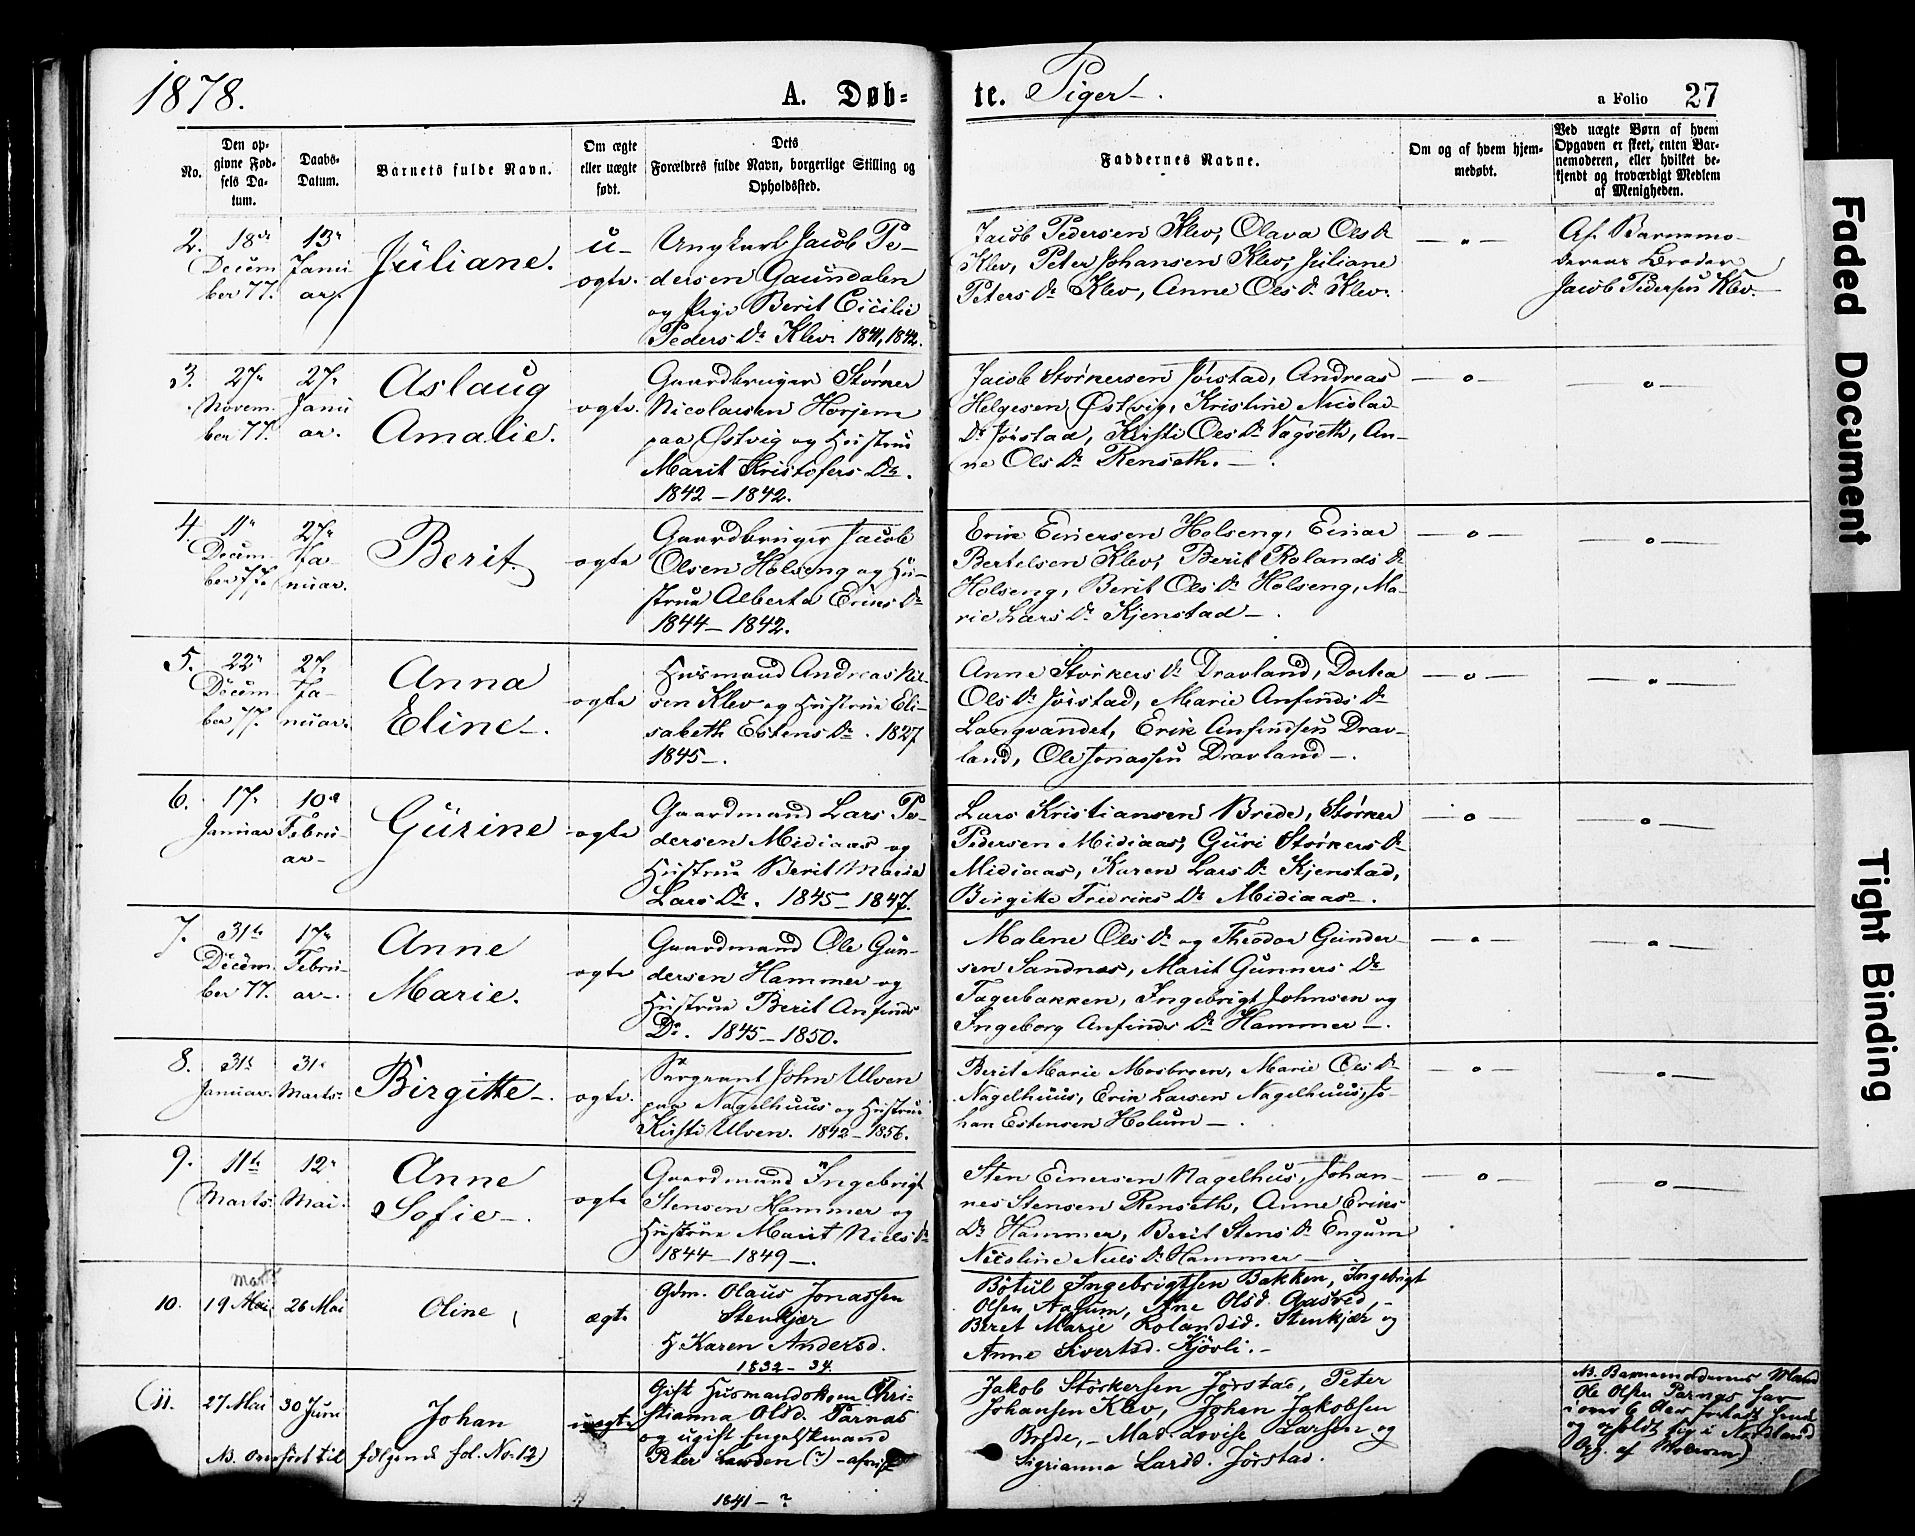 1878.
A. Døb-
te. Piger
a Folio 27
No.
Den op-
givne Fød-
sels Da-
tum.
Daabs-
Datum.
Barnets fulde Navn.
Om ægte
eller uægte
født.
Dets
Forældres fulde Navn, borgerlige Stilling og
Opholdssted.
Faddernes Navne.
Om og af hvem hjem-
medøbt.
Ved uægte Børn af hvem
Opgaven er skeet, enten Bar-
nemoderen, eller hvilket be-
kjendt og troværdigt Medlem
af Menigheden.
2.
18de
Decem
ber 77.
13de
Janu
ar.
Juliane.
u-
ægte.
Ungkarl Jacob Pe-
dersen Gaundalen
og Pige Berit Cicilie
Peders Dr Klev. 1841, 1842.
Jacob Pedersen Klev, Olava Ols Dr
Klev, Peter Johansen Klev, Juliane
Peters Dr Klev, Anne Ols Dr Klev.
Af Barnemo-
derens Broder
Jacob Pedersen Klev.
3.
27de
Novem
ber 77.
27de
Janu
ar.
Aslaug
Amalie.
ægte.
Gaardbruger Størker
Nicolaisen Horjem
paa Østvig og Hustru
Marit Kristofers Dr.
1842 – 1842.
Jacob Størkersen Jørstad, Andreas
Helgesen Østvig, Kristine Nicolai
Dr Jørstad, Kirsti Ols Dr Vagseth, An-
ne Ols Dr Renseth.
4.
11te
Decem
ber 77.
27de
Ja-
nuar.
Berit.
ægte
Gaardbruger Jacob
Olsen Holseng og Hu-
strue Alberta Eriks Dr
1844 – 1842.
Erik Einersen Holseng, Einar
Bertelsen Klev, Berit Rolands Dr
Holseng, Berit Ols Dr Holseng, Ma-
rie Lars Dr Kjenstad.
5.
22de
Decem
ber 77.
27de
Ja-
nuar.
Anna
Eline.
ægte
Husmand Andreas Niel-
sen Klev og Hustrue Eli-
sabeth Estens Dr. 1827
1845.
Anne Størkers Dr Dravland, Dortea
Ols Dr Jørstad, Marie Anfinds Dr
Langvandet, Erik Anfindsen Drav-
land, Ole Jonassen Dravland.
6.
17de
Januar
10de
Febru-
ar
Gurine
ægte
Gaardmand Lars Pe-
dersen Midiaas og
Hustrue Berit Maria
Lars Dr. 1845 – 1847.
Lars Kristiansen Brede, Størker
Pedersen Midiaas, Guri Størkers Dr
Midiaas, Karen Lars Dr Kjenstad,
Birgitte Fredriks Dr Midiaas.
7.
31te
Decem
ber 77.
17de
Febru-
ar.
Anne
Marie.
ægte
Gaardmand Ole Gun-
dersen Hammer og
Hustrue Berit Anfinds
Dr. 1845 – 1850.
Malene Ols Dr og Theodor Gunder-
sen Sandnæs, Marit Gunners Dr
Tagerbakken, Ingebrigt Johnsen og
Ingeborg Anfinds Dr Hammer.
8.
31te
Januar.
31te
Marts.
Birgitte.
ægte.
Sergeant John Ulven
paa Nagelhuus og Hustrue
Kirsti Ulven. 1842 – 1856.
Berit Marie Mosbroen, Marie Ols Dr
Nagelhuus, Erik Larsen Nagelhuus, Jo-
han Estensen Holum.
9.
11te
Marts.
12te
Mai.
Anne
Sofie.
ægte
Gaardmand Ingebrigt
Stensen Hammer og
Hustrue Marit Niels Dr
1844 – 1849.
Sten Einersen Nagelhus, Johan-
nes Stensen Renseth, Anne Eriks
Dr Hammer, Berit Stens Dr Engum
Nicoline Niels Dr Hammer
10.
Marts
19 Mai
26 Mai
Oline
ægte
Gdm. Olaus Jonassen
Stenkjær
H Karen Andersd.
1832 – 34.
Bøtul Ingebrigtsen Bakken, Ingebrigt
Olsen Aasum, Ane Olsd. Aasved,
Beret Marie Rolandsd. Stenkjær og
Anne Sivertsd. Kjövli.
(11.
27 Mai
30 Juni
Johan
uægte
Gift Husmandskone Chri-
stianna Olsd. Parnas
og ugift Engelskmand
Peter Lawden (?)
1841 – ?
Jakob Størkersen Jørstad, Peter
Johansen Klev, Johan Jakobsen
Brede, – Mad. Lovise Larsen og
Sigrianna Larsd. Jørstad.
NB. Barnemoderens Mand
Ole Olsen Parnas har
i over 6 Aar forladt hende
og opholdt sig i Nordland
Opg. af Moderen)
NB. Overført til følgende fol. No. 12)
Faded Document
Tight Binding